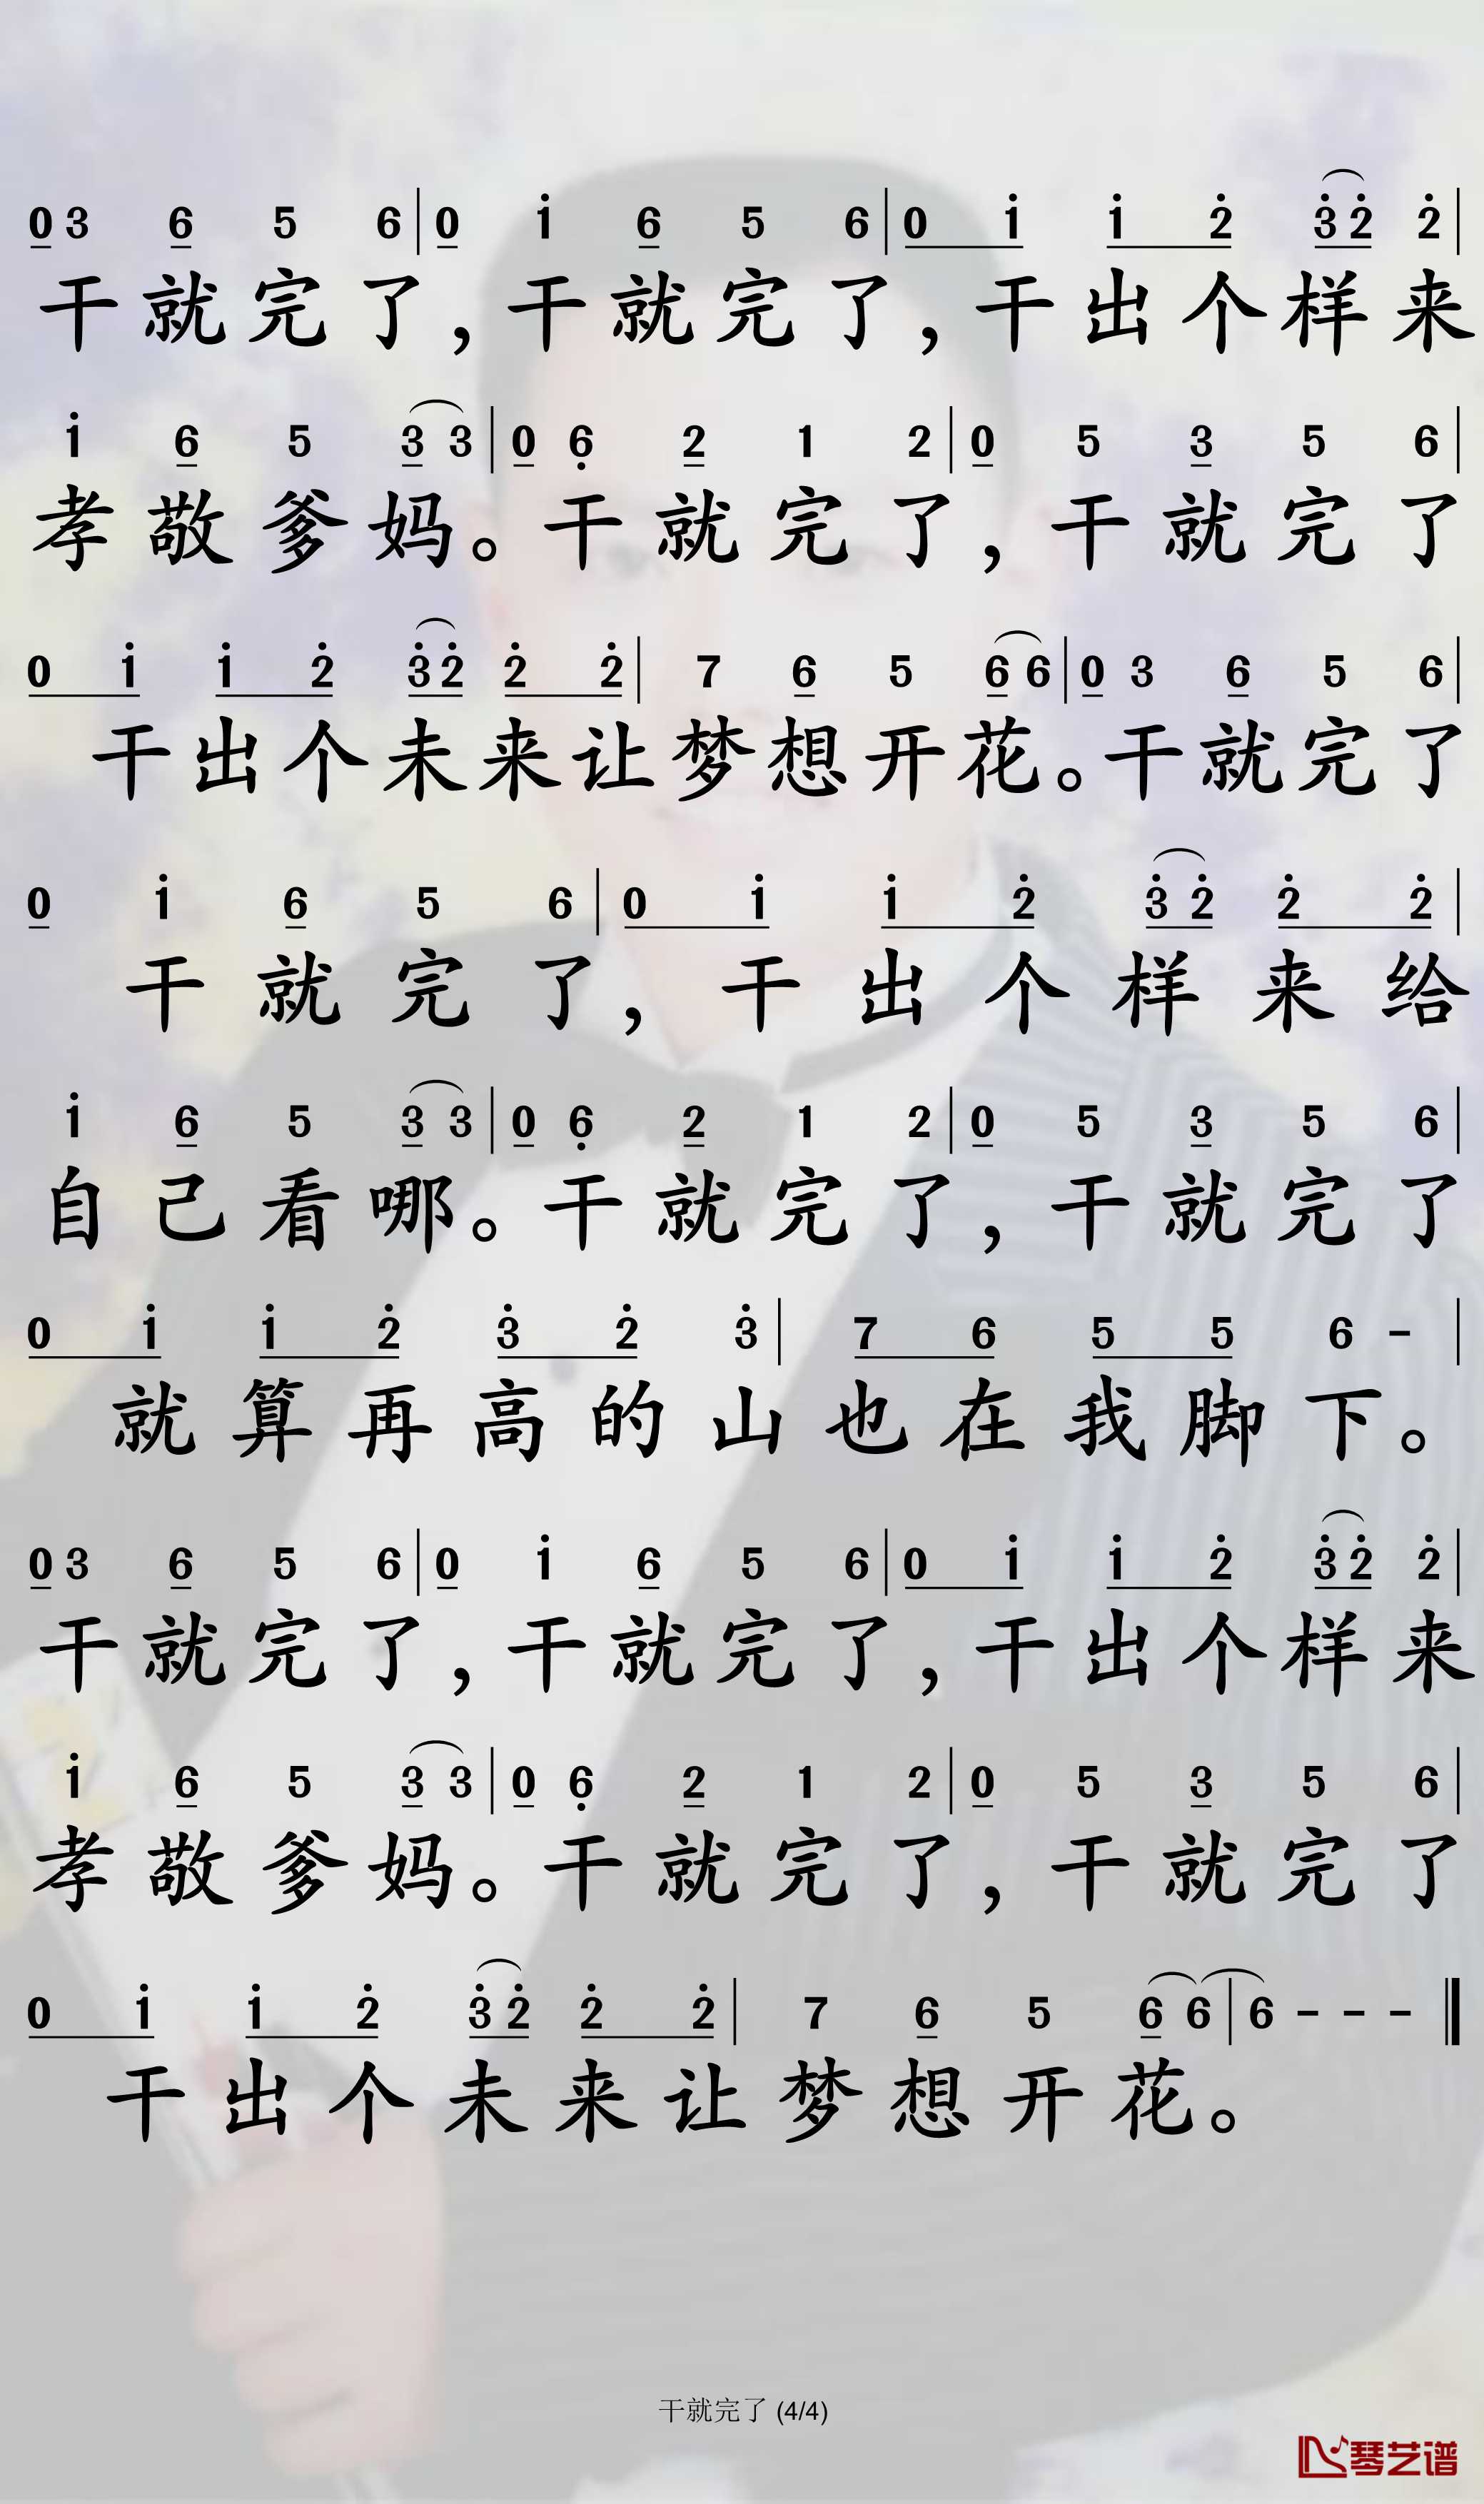 0 3 6 5 6 | 0 i 6 5 6 | 0 i i 2̇ 3̇ 2̇ 2̇ |
干就完了，干就完了，干出个样来
i 6 5 3 3 | 0 6̣ 2 1 2 | 0 5 3 5 6 |
孝敬爹妈。干就完了，干就完了
0 i i 2̇ 3̇ 2̇ 2̇ 2̇ | 7 6 5 6 6 | 0 3 6 5 6 |
干出个未来让梦想开花。干就完了
0 i 6 5 6 | 0 i i 2̇ 3̇ 2̇ 2̇ 2̇ |
干就完了，干出个样来给
i 6 5 3 3 | 0 6̣ 2 1 2 | 0 5 3 5 6 |
自己看哪。干就完了，干就完了
0 i i 2̇ 3̇ 2̇ 3̇ | 7 6 5 5 6 - |
就算再高的山也在我脚下。
0 3 6 5 6 | 0 i 6 5 6 | 0 i i 2̇ 3̇ 2̇ 2̇ |
干就完了，干就完了，干出个样来
i 6 5 3 3 | 0 6̣ 2 1 2 | 0 5 3 5 6 |
孝敬爹妈。干就完了，干就完了
0 i i 2̇ 3̇ 2̇ 2̇ 2̇ | 7 6 5 6 6 | 6 - - - ‖
干出个未来让梦想开花。
干就完了 (4/4)
琴艺谱